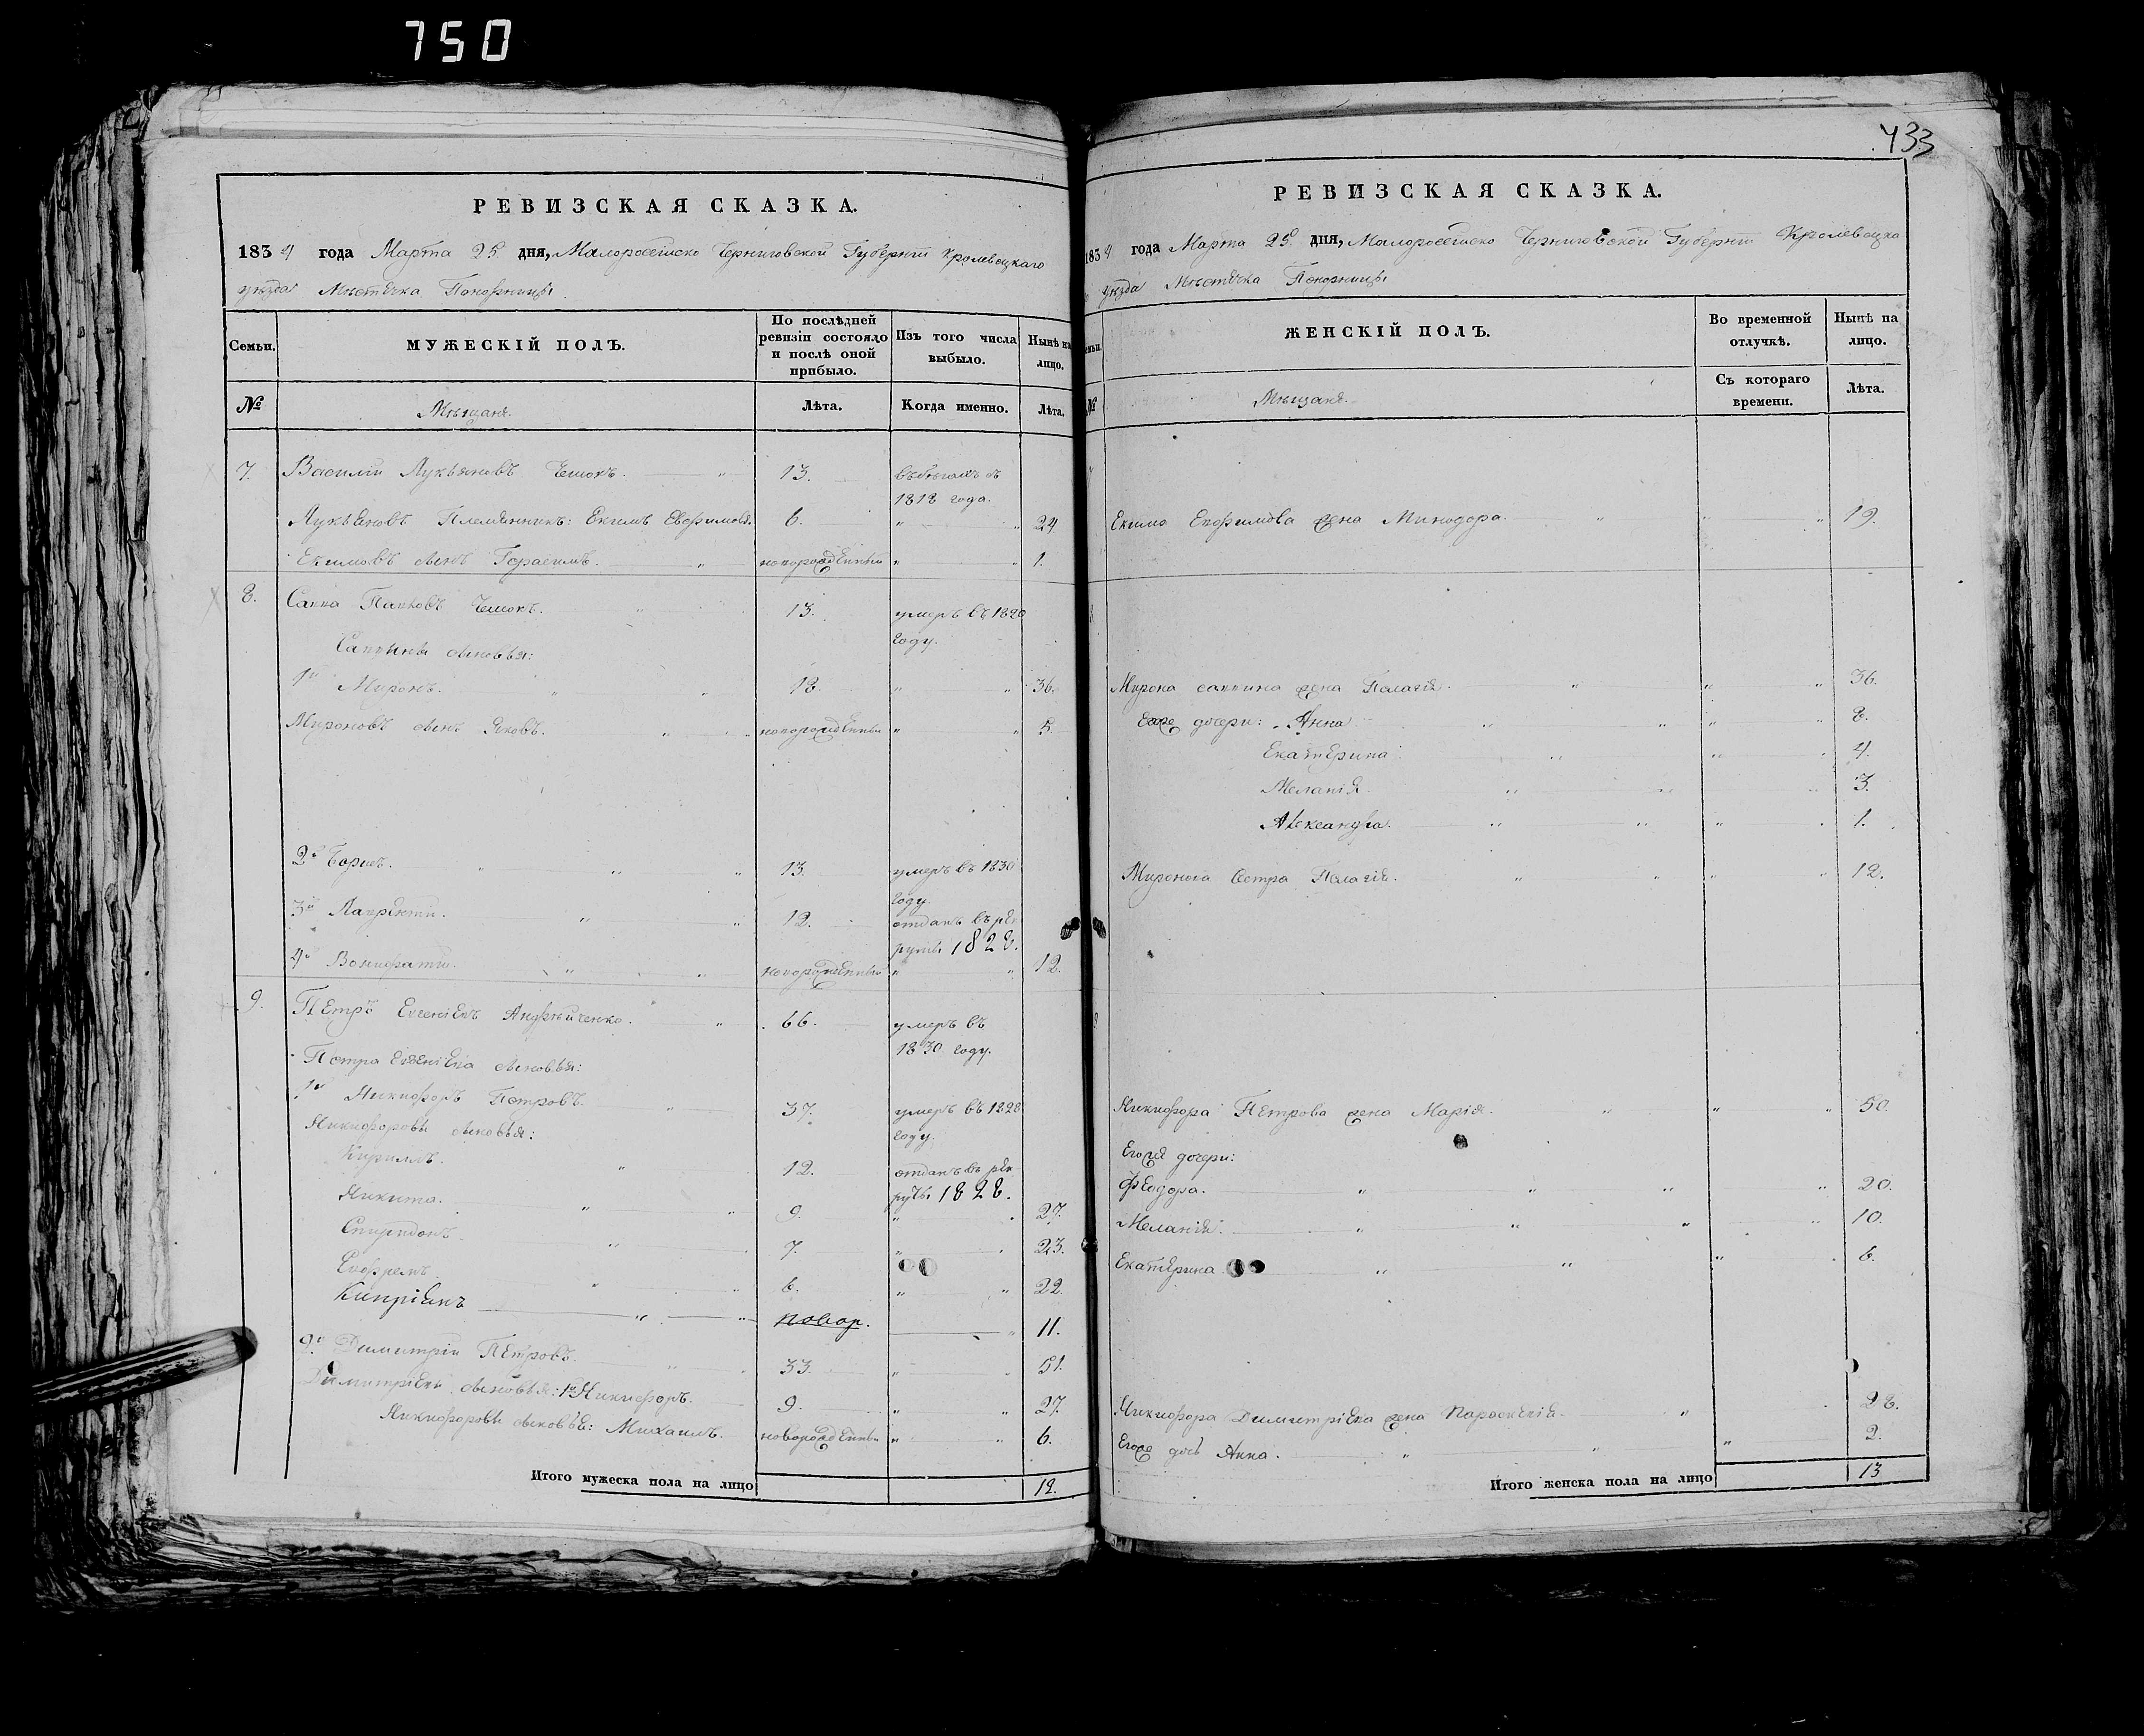 750
433
РЕВИЗСКАЯ СКАЗКА.
1834 года Марта 25 дня, Малоросейско Черниговской Губернїи Кролевецкаго
уезда Мѣстѣчка Понорницы
Семьи.
МУЖЕСКІЙ ПОЛЪ.
По послѣдней ревизіи состояло и послѣ оной прибыло.
Изъ того числа выбыло.
Нынѣ на лицо.
№
Мѣщанѣ.
Лѣта.
Когда именно.
Лѣта.
7. Василий Лукьяновъ 13.
1818 года.
Лукьяновъ Племянникъ: Екимъ Евфимовъ 6. " " 24
Екимовъ сынъ Герасимъ. " новорожденный " " 1.
8. Савва 13. умеръ въ 1820
году.
Саввины сыновья:
1й Миронъ. " " 18. " " 36.
Мироновъ сынъ Яковъ. " " новорожденный " " 5.
2й Борисъ. " " " 13. умеръ въ 1830
году.
3й Лаврентий. " " 12. отданъ въ рек
руты 1828.
4й Вонифатий. " " новорожденный " " 12.
9. Петръ Евгеніевъ Андрѣйченко. " 66. умеръ въ
1830 году.
Петра Евгеніева сыновья:
1й Никифоръ Петровъ. " 37. умеръ въ 1828
году.
Никифоровы сыновья:
Кириллъ. " 12. отданъ въ рек
руты 1828.
Никита. " " 9. " 27.
Спиридонъ. " 7. " 23.
Евфремъ. " 6. " " 22.
Кипріянъ " " новор. " 11.
2й Димитрий Петровъ. " 33. " 51.
Димитріевы сыновья: 1й Никифоръ. 9. " " 27.
Никифоровы сыновья: Михаилъ. новорожденный " " 6.
Итого мужеска пола на лицо 12.
РЕВИЗСКАЯ СКАЗКА.
1834 года Марта 25 дня, Малоросейско Черниговской Губернїи Кролевецка
уезда Мѣстѣчка Понорницы
ЖЕНСКІЙ ПОЛЪ.
Во временной отлучкѣ.
Нынѣ на лицо.
№
Мѣщанѣ.
Съ котораго времени.
Лѣта.
Екима Евфимова жена Минодора. " " " 19.
Мирона саввина жена Пелагія. " " " 36.
Егоже дочери: Анна " " " 8.
Екатерина " " 4.
Меланія. " " 3.
Александра. " " " 1.
Миронова сестра Пелагія. " " " " 12.
Никифора Петрова жена Марія. " " " 50.
Егоже дочери:
Феодора. " " " " 20.
Меланія. " " " " 10.
Екатерина " " " 6.
Никифора Димитріева жена Параскевія. " 28.
Егоже дочь Анна. " " " 2.
Итого женска пола на лицо 13